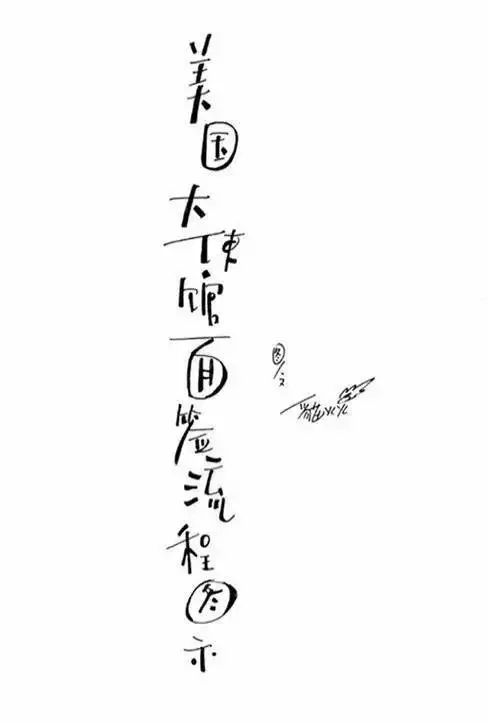 美国大使馆面签流程图示
图/文